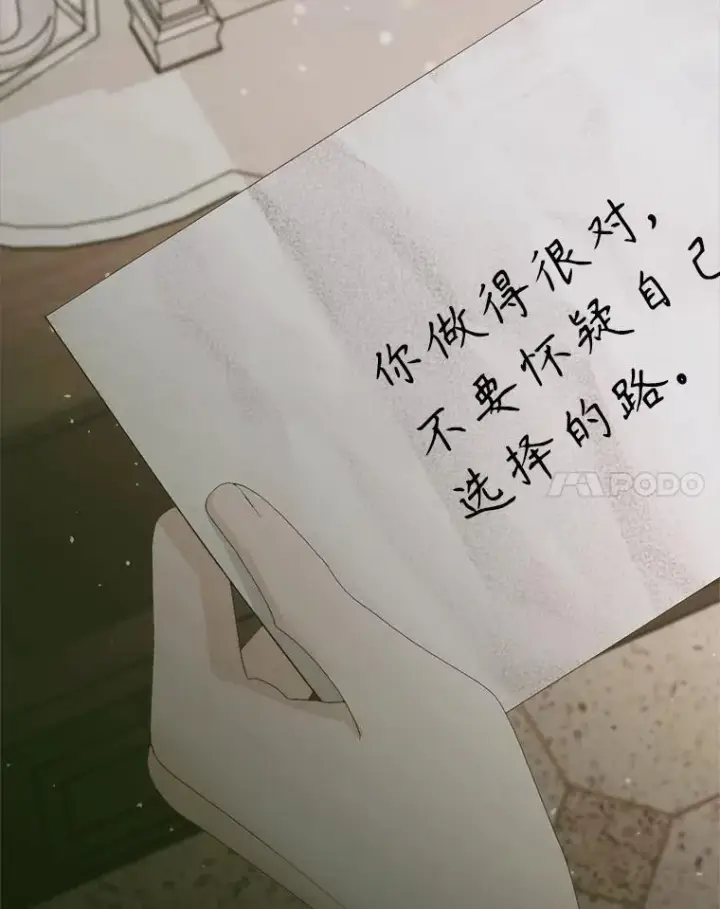 你做得很对，
不要怀疑自己
选择的路。
PODO